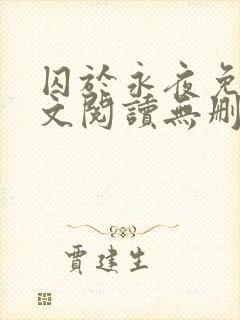 囚於永夜免
文閱讀無刪
賈建生